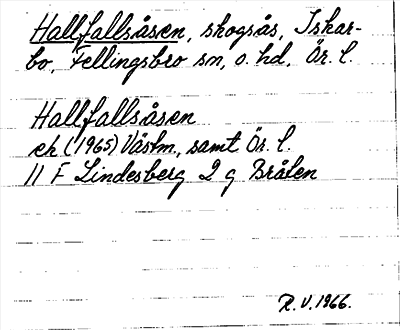 Hallfallsåsen, skogsås, Iskar-
bo, Fellingsbro sn, o. hd, Ör. l.
Hallfallsåsen
ek (1965) Västm, samt Ör. l.
11 F Lindesberg 2 g Bråten
R.V. 1966.